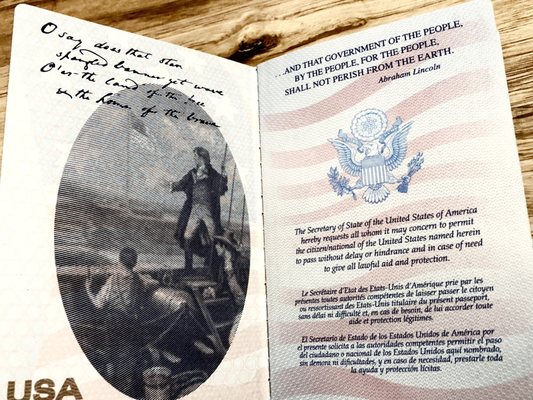 O say does that star
spangled banner yet wave
O'er the land of the free
and the home of the brave
USA
...AND THAT GOVERNMENT OF THE PEOPLE,
BY THE PEOPLE, FOR THE PEOPLE,
SHALL NOT PERISH FROM THE EARTH.
Abraham Lincoln
The Secretary of State of the United States of America
hereby requests all whom it may concern to permit
the citizen/national of the United States named herein
to pass without delay or hindrance and in case of need
to give all lawful aid and protection.
Le Secrétaire d'Etat des Etats-Unis d'Amérique prie par les
présentes toutes autorités compétentes de laisser passer le citoyen
ou ressortissant des Etats-Unis titulaire du présent passeport,
sans délai ni difficulté et, en cas de besoin, de lui accorder toute
aide et protection légitimes.
El Secretario de Estado de los Estados Unidos de América por
el presente solicita a las autoridades competentes permitir el paso
del ciudadano o nacional de los Estados Unidos aquí nombrado,
sin demora ni dificultades, y en caso de necesidad, prestarle toda
la ayuda y protección lícitas.